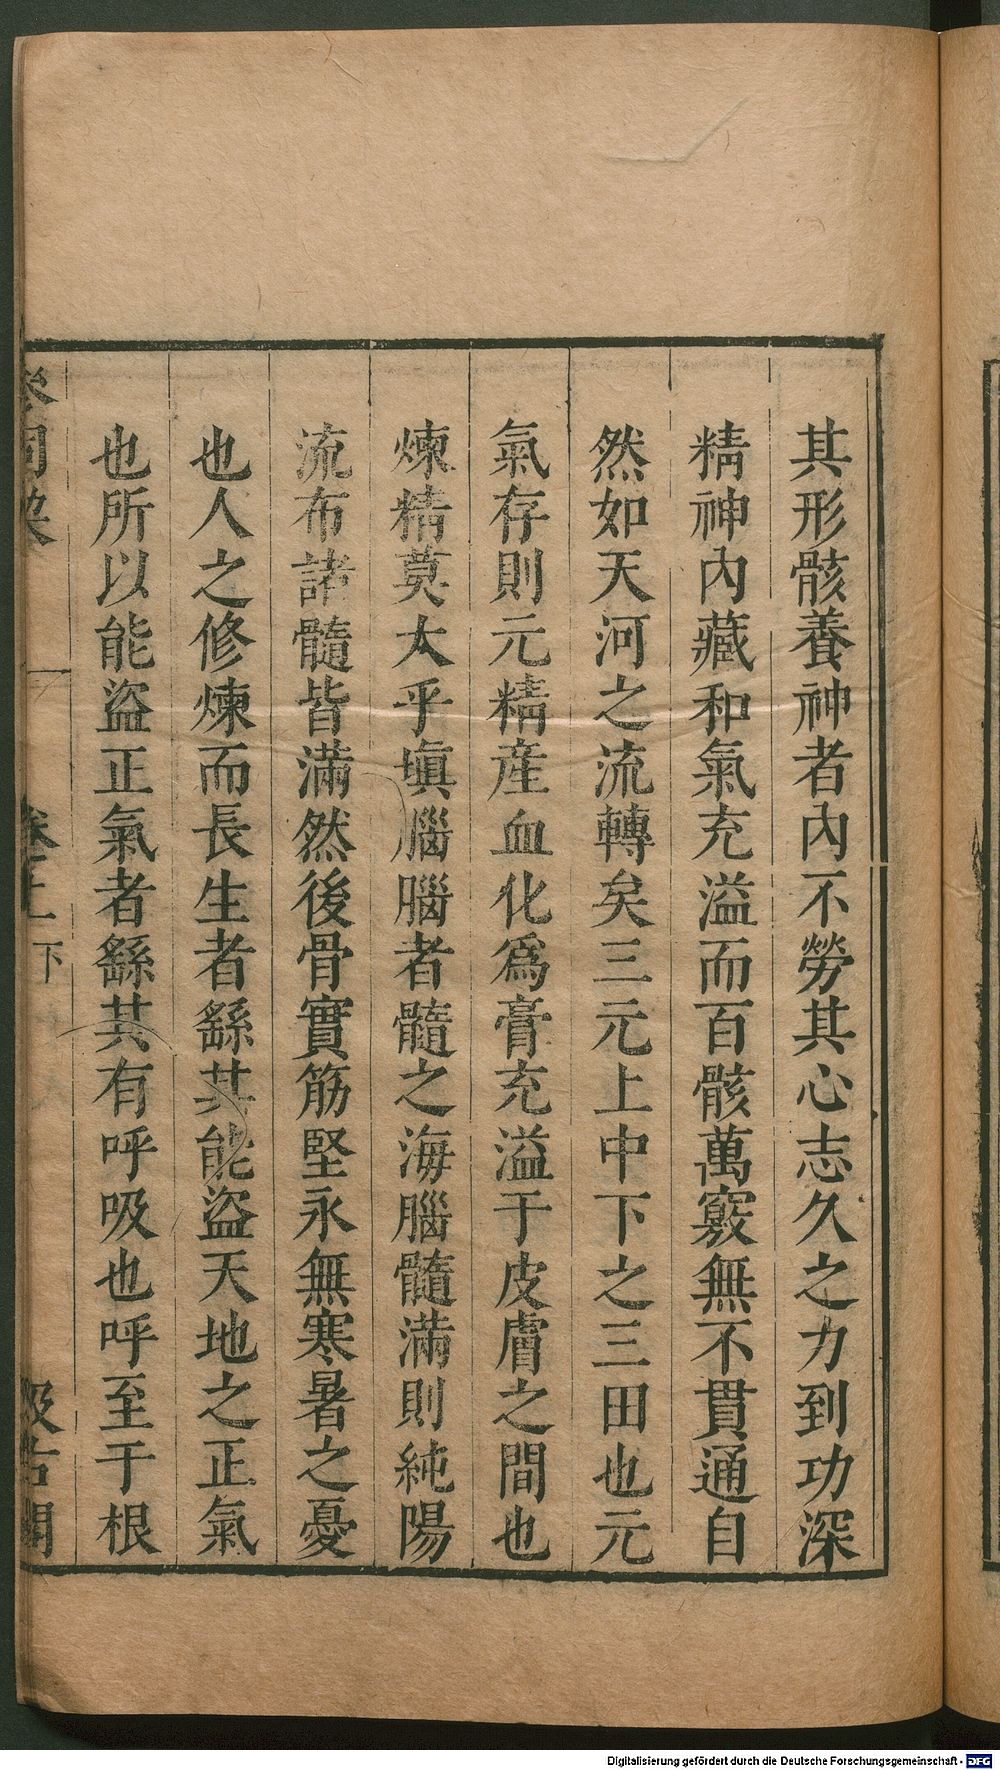 其形骸養神者內不勞其心志久之力到功深
精神內藏和氣充溢而百骸萬竅無不貫通自
然如天河之流轉矣三元上中下之三田也元
氣存則元精產血化爲膏充溢于皮膚之間也
煉精莫大乎塡腦腦者髓之海腦髓滿則純陽
流布諸髓皆滿然後骨實筋堅永無寒暑之憂
也人之修煉而長生者繇其能盜天地之正氣
也所以能盜正氣者繇其有呼吸也呼至于根
下
Digitalisierung gefördert durch die Deutsche Forschungsgemeinschaft - DFG